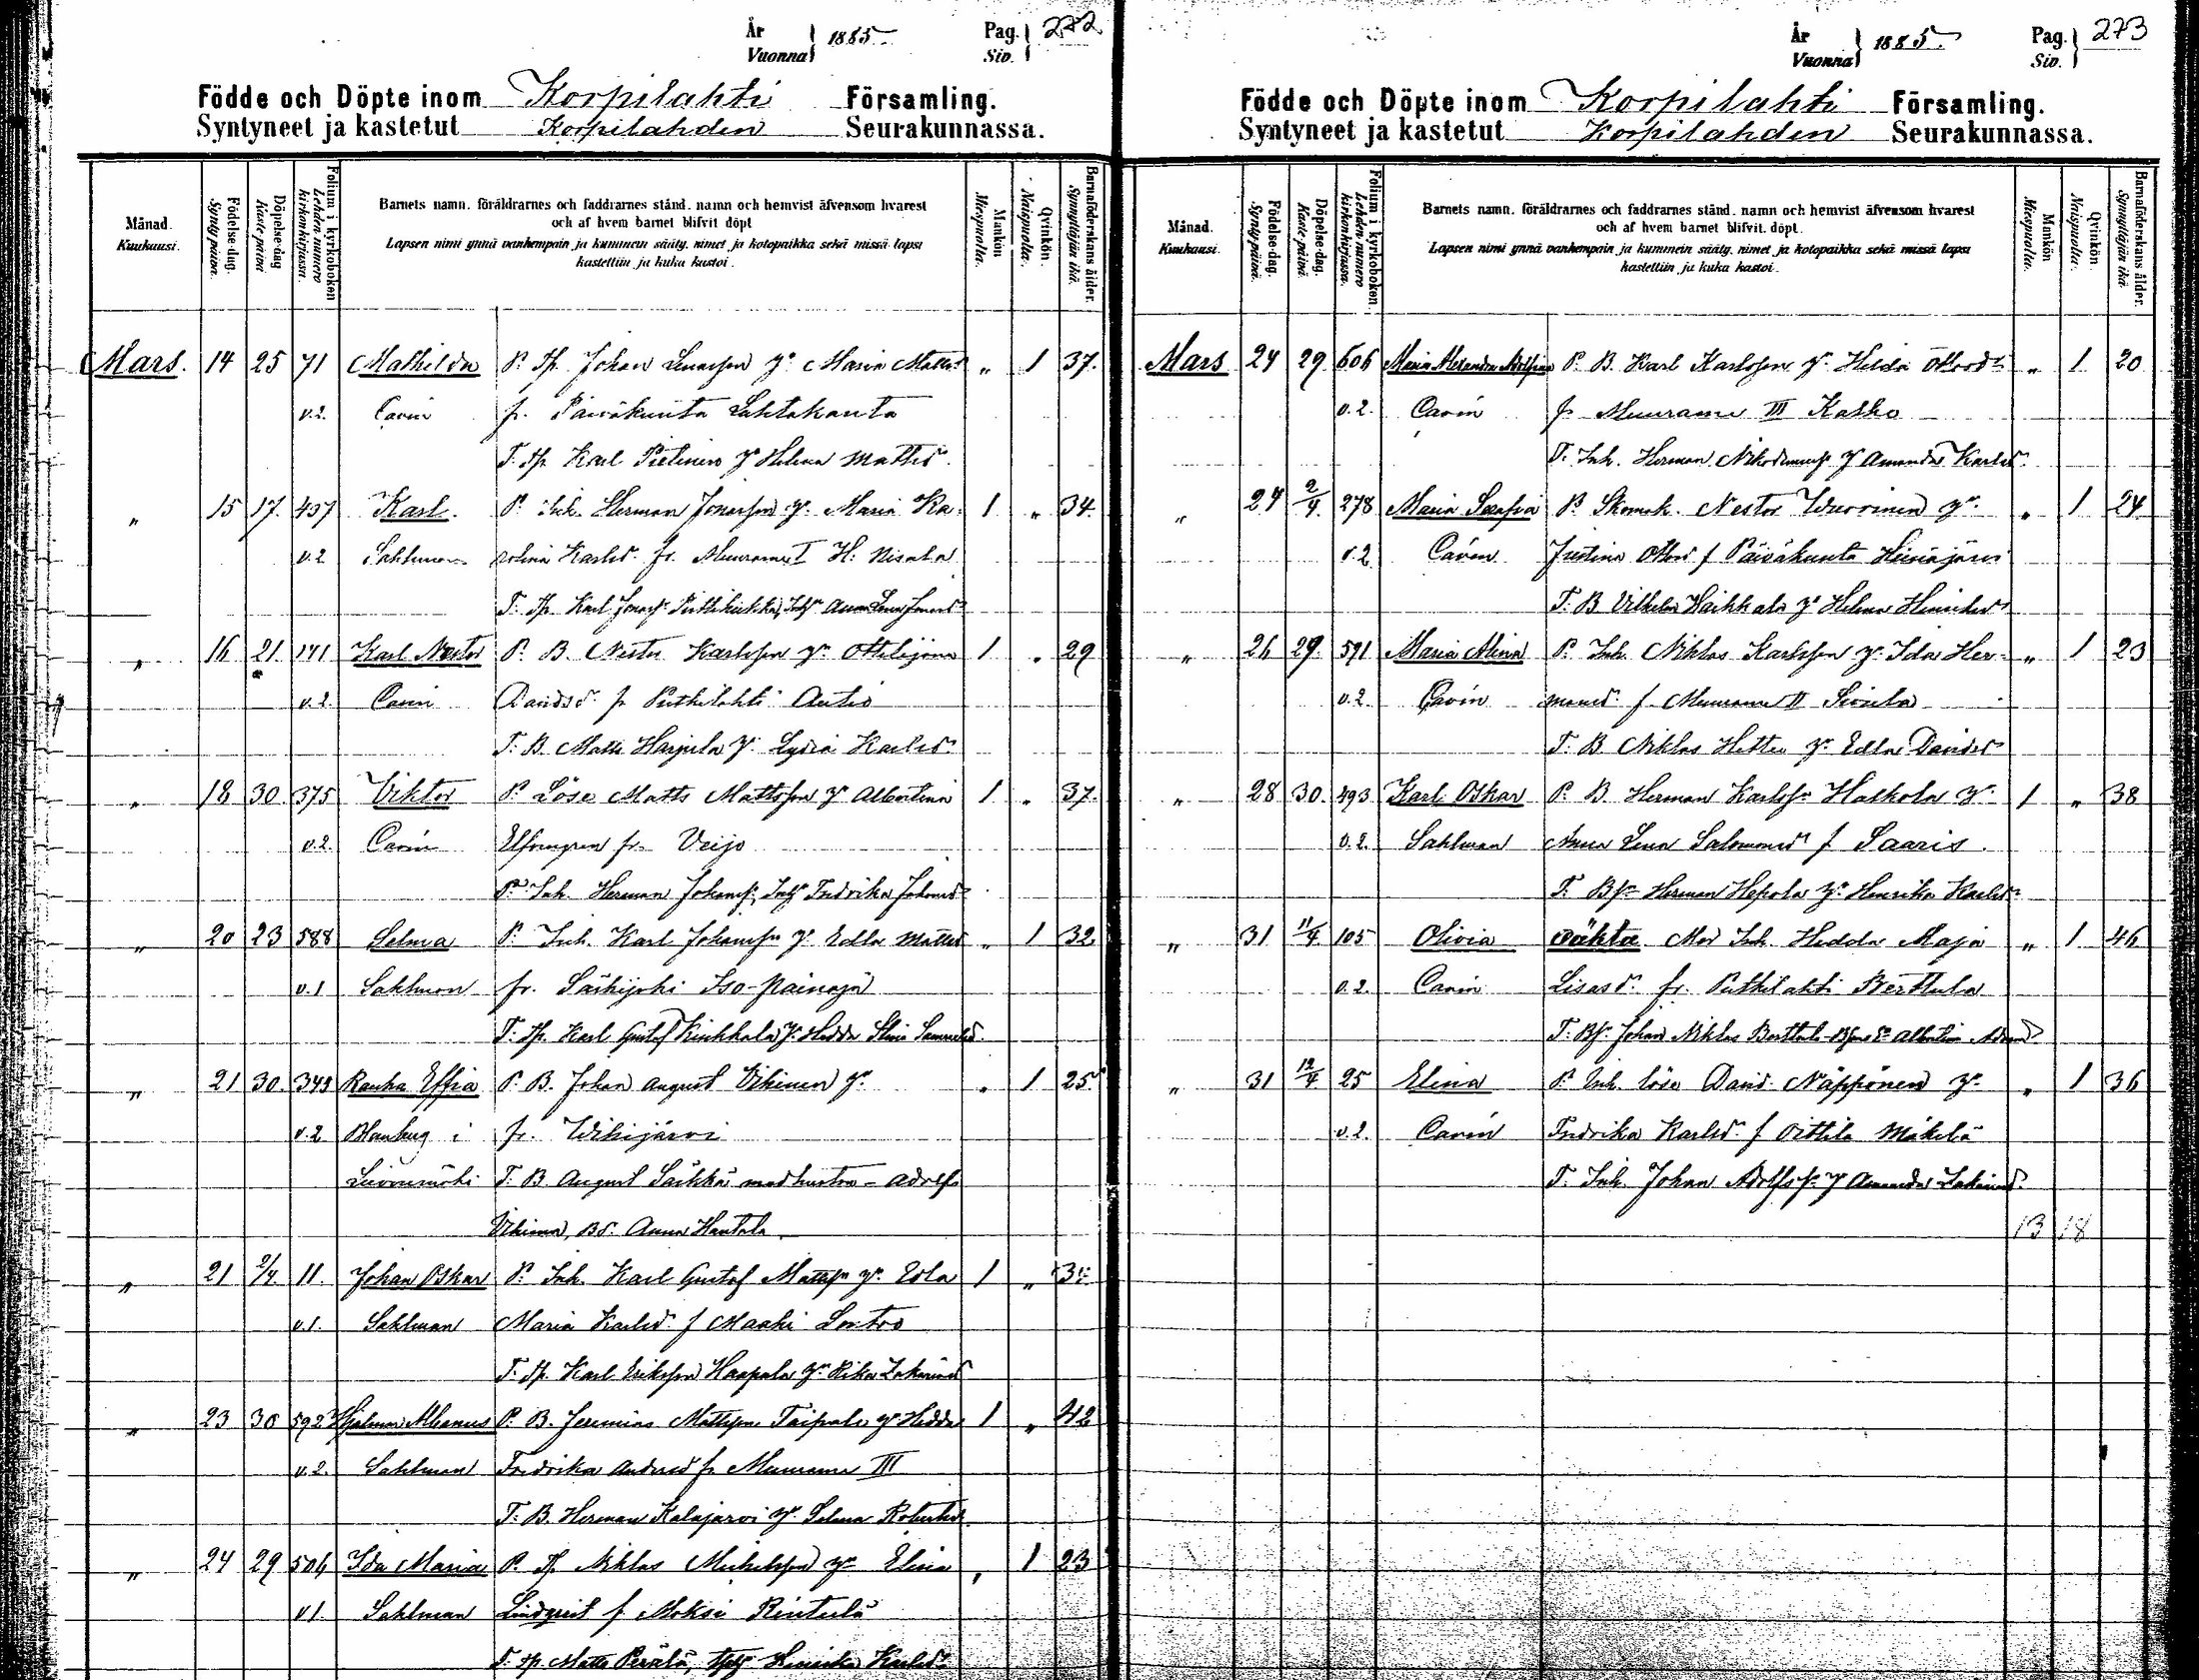 År
Vuonna } 1885
Pag.
Siv. } 272
Födde och Döpte inom Korpilahti Församling.
Syntyneet ja kastetut Korpilahden Seurakunnassa.
Månad. Kuukausi.
Födelse-dag. Synty-päivä.
Döpelse-dag Kaste-päivä
Folium i kyrkoboken Lehden numero kirkonkirjassa.
Barnets namn, föräldrarnes och faddrarnes stånd, namn och hemvist äfvensom hvarest
och af hvem barnet blifvit döpt
Lapsen nimi ynnä vanhempain ja kummein sääty, nimet ja kotopaikka sekä missä lapsi
kastettiin ja kuka kastoi.
Mankön Miespuolia.
Qvinkön. Naispuolia.
Barnaföderskans ålder. Synnyttäjän ikä.
Mars. 14 25 71 Mathilda P. Tp. Johan Y. Maria Matts „ 1 37.
v.2. Cavén fr. Päiväkunta Lahtakanta
T. Tp. Karl Pietinen Y Helena Mattsd.
„ 15 17. 457 Karl. P. Inh. Herman Jonasson Y. Maria Ka- 1 „ 34.
v.2 Sahlman rolina Karlsd. fr. Muurame I H. Nisula
T. Tp. Karl
„ 16 21. 171 Karl Nestor P. B. Nestor Karlsson Yr. Ottilijana 1 „ 29
v.2. Cavén Davidsd. fr Putkilahti Autio
T. B. Matts Harjula Y. Lydia Karlsd.
„ 18 30. 375 Viktor P. Löse Matts Mattsson Y Albertina 1 „ 37.
v.2. Cavén Elfvengren fr. Veijo
Inh. Herman
„ 20 23 588 Selma P. Inh. Karl Johansson Y. Edla Mattsd „ 1 32
v.1 Sahlman fr. Särkijoki Iso-painaja
T. Tp. Karl Gustaf Kinkkala Y. Hedda Stina Samuelsd.
„ 21 30. 343 Rauha Effia P. B. Johan August Vihinen Y. „ 1 25
v.2 Blanhug i fr. Wihijärvi
Leivonmäki T. B. August Särkkä med hustru - Adolf
Vihinen, Anna Hautala
„ 21 2/4 11. Johan Oskar P. Inh. Karl Gustaf Mattsson Yr. Edla 1 „
v.1. Sahlman Maria Karlsd. f Maahi
T. Tp. Karl Eriksson Haapala Yr. Rika Zakarisd
„ 23 30 592 Hjalmar Albanus P. B. Jeremias Mattsson Taipale Yr Hedda 1 „ 42
v.2. Sahlman Fredrika Andersd fr Muurame III
T. B. Herman Kalajärvi Y. Selma Robertsd.
„ 24 29 504 Ida Maria P. Tp. Niklas Michelsson Yr Elina „ 1 23
v.1. Sahlman Lindqvist f Moksi Rintula
T. Tp. Matts Perälä, Henrika Karlsd.
År
Vuonna } 1885.
Pag.
Siv. } 273
Födde och Döpte inom Korpilahti Församling.
Syntyneet ja kastetut Korpilahden Seurakunnassa.
Månad. Kuukausi.
Födelse-dag. Synty-päivä.
Döpelse-dag. Kaste-päivä.
Folium i kyrkoboken Lehden numero kirkonkirjassa.
Barnets namn, föräldrarnes och faddrarnes stånd, namn och hemvist äfvensom hvarest
och af hvem barnet blifvit döpt.
Lapsen nimi ynnä vanhempain ja kummein sääty, nimet ja kotopaikka sekä missä lapsi
kastettiin ja kuka kastoi.
Mankön Miespuolia.
Qvinkön Naispuolia.
Barnaföderskans ålder. Synnyttäjän ikä.
Mars 24 29 606 Maria Alexandra Adolfina P. B. Karl Karlsson Y. Hilda Ottosd. „ 1 20
v.2. Cavén fr Muurame III Kalho
T. Inh. Herman Nikodemuss. Y Amanda Karlsd.
„ 24 2/4 278 Maria Serafia P. Skomak. Nestor Wuorinen Yr. „ 1 24
v.2 Cavén Justina Ottosd f Päiväkunta Heinäjärvi
T. B Vilhelm Haikkala Yr Helena Henriksd
„ 26 29. 591 Maria Alina P. Inh. Niklas Karlsson Y. Ida Her- „ 1 23
v.2. Cavén mansd. f Muurame II Sivula
T. B Niklas Yr Edla Davidsd
„ 28 30. 493 Karl Oskar P. B. Herman Karlss. Halkola Yr. 1 „ 38
v.2. Sahlman Anna Lena Salomonsd f Saaris.
T. Herman Hepola Yr. Henrika Karlsd.
„ 31 11/4 105 Olivia oäkta Mor Inh. Hedda Maja „ 1 46
v.2. Cavén Lisasd. fr. Putkilahti Perttula
T. Johan Niklas Albertina
„ 31 12/4 25 Elina P. Inh. löse David Näpponen Yr. „ 1 36
v.2. Cavén Fredrika Karlsd. f Oittila Mäkelä
T. Inh. Johan Adolfss. Y Amanda Zakarisd.
13 18